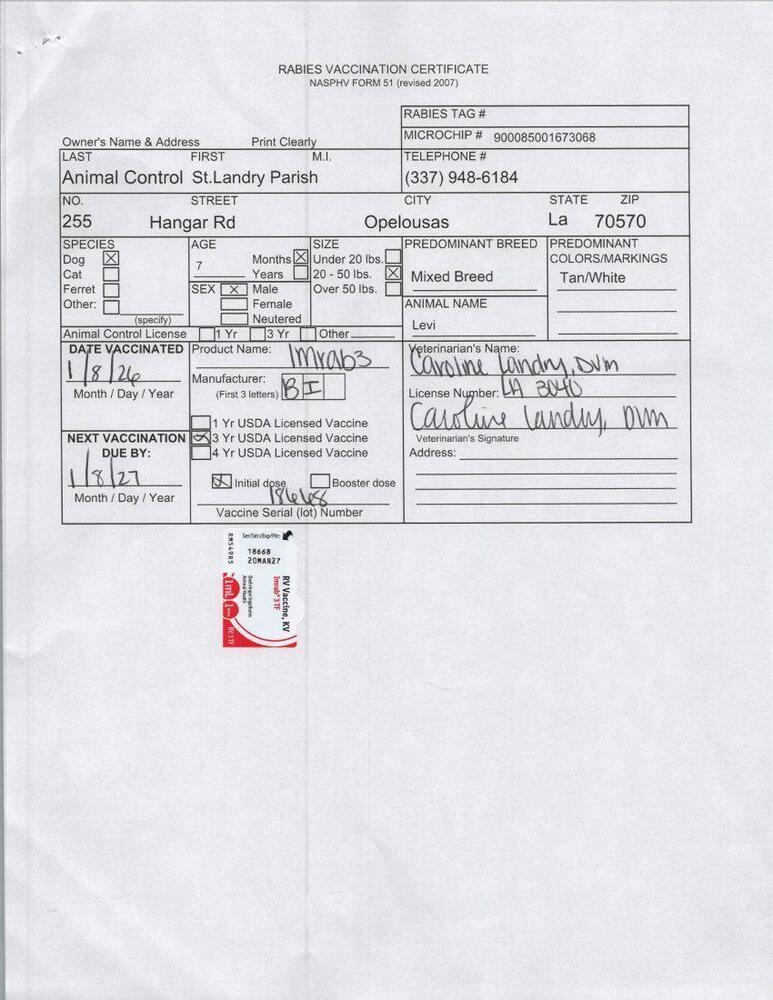 RABIES VACCINATION CERTIFICATE
NASPHV FORM 51 (revised 2007)
RABIES TAG #
Owner's Name & Address Print Clearly MICROCHIP # 900085001673068
LAST FIRST M.I. TELEPHONE #
Animal Control St.Landry Parish (337) 948-6184
NO. STREET CITY STATE ZIP
255 Hangar Rd Opelousas La 70570
SPECIES AGE SIZE PREDOMINANT BREED PREDOMINANT
Dog X Months X Under 20 lbs. COLORS/MARKINGS
Cat 7 Years 20 - 50 lbs. X Mixed Breed Tan/White
Ferret SEX X Male Over 50 lbs.
Other: Female ANIMAL NAME
(specify) Neutered Levi
Animal Control License 1 Yr 3 Yr Other
DATE VACCINATED Product Name: Imrab3 Veterinarian's Name:
1/8/26 Caroline Landry, DVM
Month / Day / Year Manufacturer: BI License Number: LA 3040
(First 3 letters)
1 Yr USDA Licensed Vaccine Caroline Landry, DVM
NEXT VACCINATION X 3 Yr USDA Licensed Vaccine Veterinarian's Signature
DUE BY: 4 Yr USDA Licensed Vaccine Address:
1/8/27 X Initial dose Booster dose
Month / Day / Year 18668
Vaccine Serial (lot) Number
Ser/Sér/Exp/Pér:
18668
20MAR27
RM549R5
RV Vaccine, KV
Imrab® 3 TF
Boehringer Ingelheim
Animal Health
1mL 1
RV3TF